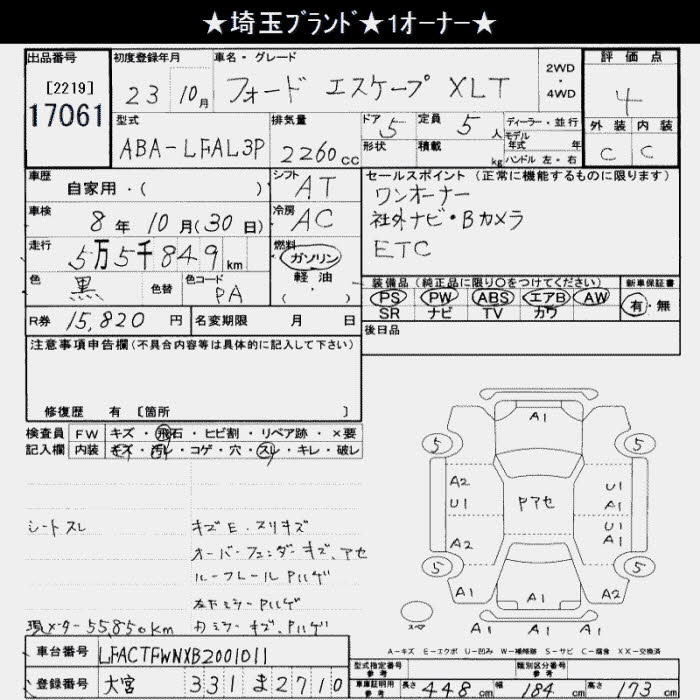 ★埼玉ブランド★1オーナー★
出品番号
[2219]
17061
初度登録年月
23 10月
車名・グレード
フォード エスケープ XLT
2WD
・
4WD
評価点
4
外装 内装
C C
型式
ABA-LFAL3P
排気量
2260cc
ドア 5
定員 5人
形状
積載 kg
ディーラー・並行
モデル年式 年
ハンドル 左・右
車歴
自家用・( )
シフト AT
車検
8年10月(30日)
冷房 AC
走行
5万5千849km
燃料
ガソリン
軽油
( )
色
黒
色替
色コード PA
セールスポイント(正常に機能するものに限ります)
ワンオーナー
社外ナビ・Bカメラ
ETC
装備品(純正品に限り○をつけてください)
PS PW ABS エアB AW
SR ナビ TV カワ
新車保証書
有・無
R券 15,820円
名変期限 月 日
後日品
注意事項申告欄(不具合内容等は具体的に記入して下さい)
修復歴 有 [箇所 ]
検査員 FW キズ・飛石・ヒビ割・リペア跡・×要
記入欄 内装 キズ・汚レ・コゲ・穴・スレ・キレ・破レ
シートスレ
キズE・スリキズ
オーバーフェンダーキズ、アセ
ルーフレールPハゲ
左下ミラーPハゲ
右ミラーキズ、Pハゲ
現メーター55,850km
A1
5 5
A2 U1
U1 A1
Pアセ
U1
A2 A1
5 5
A1 A1 A2
A1 A1 A1
スペア
A-キズ E-エクボ U-凹み W-補修跡 S-サビ C-腐食 XX-交換済
車台番号 LFACTFWNXB2001011
登録番号 大宮 331 ま 2710
型式指定番号 参考
類別区分番号 参考
車庫証明用 参考 長さ 448cm 幅 184cm 高さ 173cm